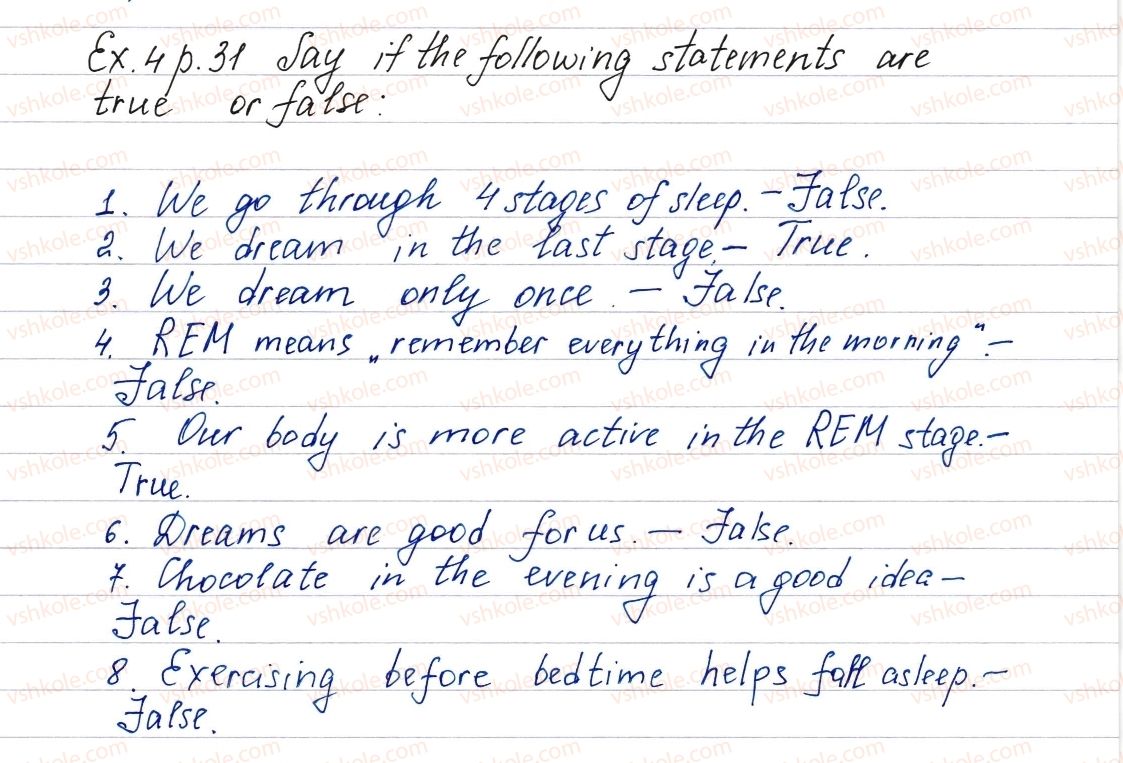 Ex. 4 p. 31 Say if the following statements are
true or false:
1. We go through 4 stages of sleep. – False.
2. We dream in the last stage. – True.
3. We dream only once. – False.
4. REM means „remember everything in the morning“. –
False.
5. Our body is more active in the REM stage. –
True.
6. Dreams are good for us. – False.
7. Chocolate in the evening is a good idea –
False.
8. Exercising before bedtime helps fall asleep. –
False.
vshkole.com